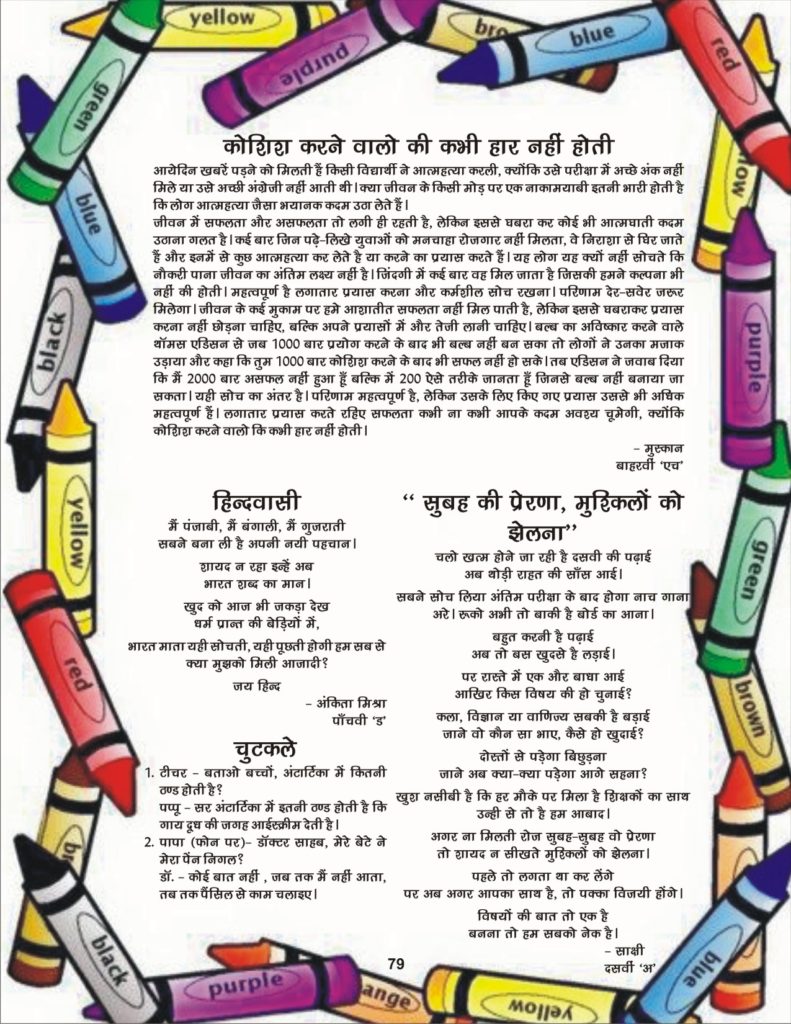 yellow
purple
brown
blue
red
green
yellow
green
blue
black
purple
yellow
green
red
brown
brown
black
blue
purple
orange
yellow
कोशिश करने वालो की कभी हार नहीं होती
आयेदिन खबरें पड़ने को मिलती हैं किसी विद्यार्थी ने आत्महत्या करली, क्योंकि उसे परीक्षा में अच्छे अंक नहीं
मिले या उसे अच्छी अंग्रेजी नहीं आती थी। क्या जीवन के किसी मोड़ पर एक नाकामयाबी इतनी भारी होती है
कि लोग आत्महत्या जैसा भयानक कदम उठा लेते हैं।
जीवन में सफलता और असफलता तो लगी ही रहती है, लेकिन इससे घबरा कर कोई भी आत्मघाती कदम
उठाना गलत है। कई बार जिन पढ़े-लिखे युवाओं को मनचाहा रोजगार नहीं मिलता, वे निराशा से घिर जाते
हैं और इनमें से कुछ आत्महत्या कर लेते है या करने का प्रयास करते हैं। यह लोग यह क्यों नहीं सोचते कि
नौकरी पाना जीवन का अंतिम लक्ष्य नहीं है। जिंदगी में कई बार वह मिल जाता है जिसकी हमने कल्पना भी
नहीं की होती। महत्वपूर्ण है लगातार प्रयास करना और कर्मशील सोच रखना। परिणाम देर-सवेर जरूर
मिलेगा। जीवन के कई मुकाम पर हमे आशातीत सफलता नहीं मिल पाती है, लेकिन इससे घबराकर प्रयास
करना नहीं छोड़ना चाहिए, बल्कि अपने प्रयासों में और तेजी लानी चाहिए। बल्ब का अविष्कार करने वाले
थॉमस एडिसन से जब 1000 बार प्रयोग करने के बाद भी बल्ब नहीं बन सका तो लोगों ने उनका मजाक
उड़ाया और कहा कि तुम 1000 बार कोशिश करने के बाद भी सफल नहीं हो सके। तब एडिसन ने जवाब दिया
कि मैं 2000 बार असफल नहीं हुआ हूँ बल्कि में 200 ऐसे तरीके जानता हूँ जिनसे बल्ब नहीं बनाया जा
सकता। यही सोच का अंतर है। परिणाम महत्वपूर्ण है, लेकिन उसके लिए किए गए प्रयास उससे भी अधिक
महत्वपूर्ण हैं। लगातार प्रयास करते रहिए सफलता कभी ना कभी आपके कदम अवश्य चूमेगी, क्योंकि
कोशिश करने वालो कि कभी हार नहीं होती।
– मुस्कान
बाहरवीं ‘एच’
हिन्दवासी
मैं पंजाबी, मैं बंगाली, मैं गुजराती
सबने बना ली है अपनी नयी पहचान।
शायद न रहा इन्हें अब
भारत शब्द का मान।
खुद को आज भी जकड़ा देख
धर्म प्रान्त की बेड़ियों में,
भारत माता यही सोचती, यही पूछती होगी हम सब से
क्या मुझको मिली आजादी?
जय हिन्द
– अंकिता मिश्रा
पाँचवी ‘ड’
चुटकले
1. टीचर – बताओ बच्चों, अंटार्टिका में कितनी
ठण्ड होती है?
पप्पू – सर अंटार्टिका में इतनी ठण्ड होती है कि
गाय दूध की जगह आईस्क्रीम देती है।
2. पापा (फोन पर)– डॉक्टर साहब, मेरे बेटे ने
मेरा पेंन निगल?
डॉ. – कोई बात नहीं , जब तक मैं नहीं आता,
तब तक पैंसिल से काम चलाइए।
“ सुबह की प्रेरणा, मुश्किलों को
झेलना”
चलो खत्म होने जा रही है दसवी की पढ़ाई
अब थोड़ी राहत की साँस आई।
सबने सोच लिया अंतिम परीक्षा के बाद होगा नाच गाना
अरे। रूको अभी तो बाकी है बोर्ड का आना।
बहुत करनी है पढ़ाई
अब तो बस खुदसे है लड़ाई।
पर रास्ते में एक और बाधा आई
आखिर किस विषय की हो चुनाई?
कला, विज्ञान या वाणिज्य सबकी है बड़ाई
जाने वो कौन सा भाए, कैसे हो खुदाई?
दोस्तों से पड़ेगा बिछुड़ना
जाने अब क्या-क्या पड़ेगा आगे सहना?
खुश नसीबी है कि हर मौके पर मिला है शिक्षकों का साथ
उन्ही से तो है हम आबाद।
अगर ना मिलती रोज सुबह-सुबह वो प्रेरणा
तो शायद न सीखते मुश्किलों को झेलना।
पहले तो लगता था कर लेंगे
पर अब अगर आपका साथ है, तो पक्का विजयी होंगे।
विषयों की बात तो एक है
बनना तो हम सबको नेक है।
– साक्षी
दसवीं ‘अ’
79